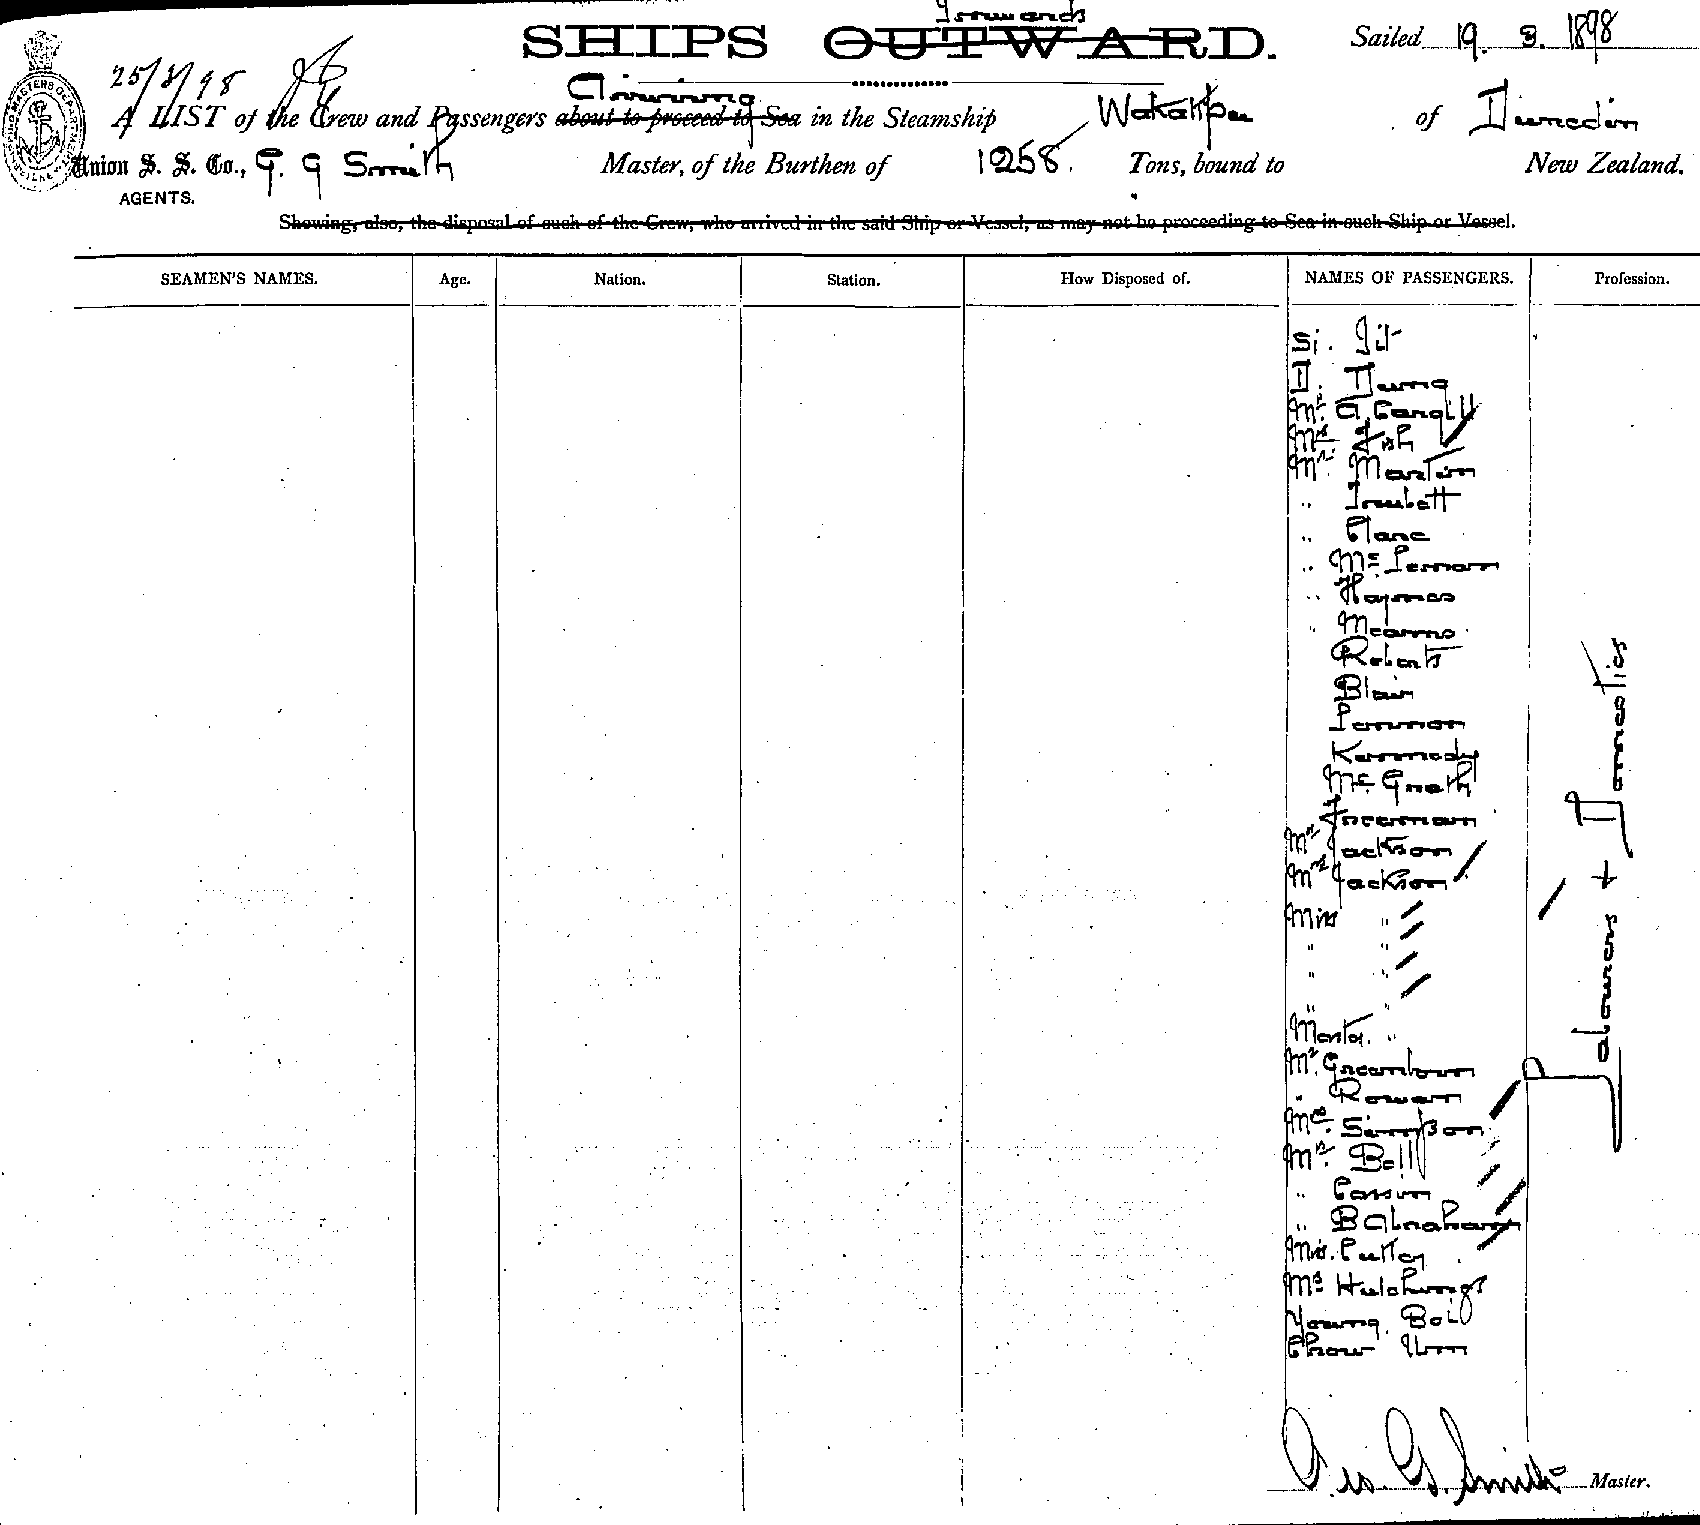 Inwards
SHIPS OUTWARD.
Sailed 19. 3. 1898
25/3/98
Arriving
A LIST of the Crew and Passengers about to proceed to Sea in the Steamship Wakatipu of Dunedin
Union S. S. Co., G. G Smith Master, of the Burthen of 1258. Tons, bound to New Zealand.
AGENTS.
Showing, also, the disposal of such of the Crew, who arrived in the said Ship or Vessel, as may not be proceeding to Sea in such Ship or Vessel.
SEAMEN'S NAMES. Age. Nation. Station. How Disposed of. NAMES OF PASSENGERS. Profession.
Mr. A Cargill
Mrs Fish
Mr. Martin
"
" Clare
" Mc Lennan
" Haymes
" Mearns
Roberts
Blair
Lennon
Kennedy
Mc Grath
Freeman
Mr Jackson
Mrs Jackson
Miss "
" "
" "
" "
Master. "
Mr. Greenbown
" Rowan
Mrs. Simpson
Mr. Bell
" Casson
" B Abraham
Miss. Cutten
Mrs Hutchings
Young.
Chow
Labourers + Domestics
Geo. G. Smith Master.